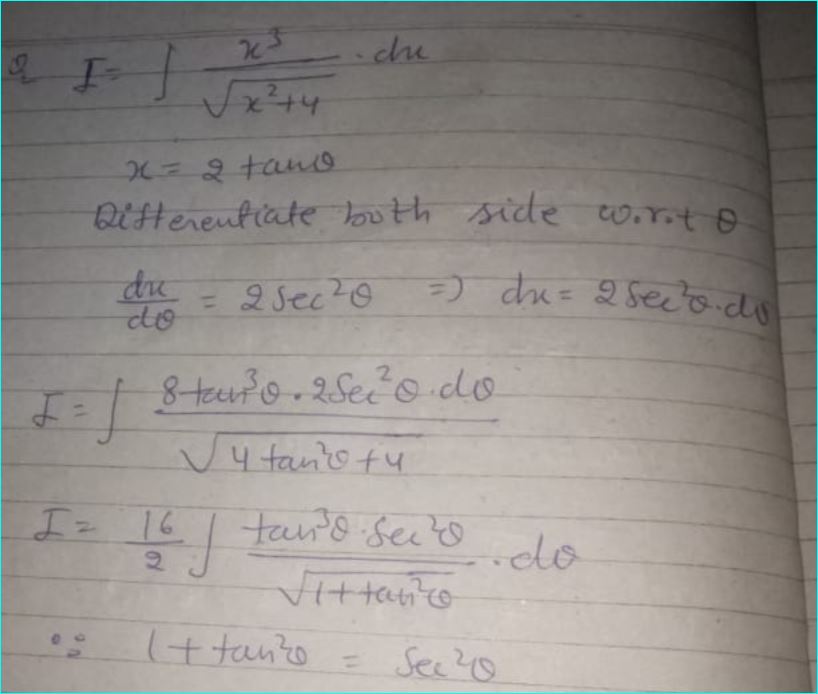 Q I = ∫ x³/√(x²+4) · dx
x = 2 tanθ
Differentiate both side w.r.t θ
dx/dθ = 2 sec²θ ⇒ dx = 2 sec²θ · dθ
I = ∫ 8 tan³θ · 2 sec²θ · dθ / √(4 tan²θ + 4)
I = 16/2 ∫ tan³θ · sec²θ / √(1 + tan²θ) · dθ
∵ 1 + tan²θ = sec²θ